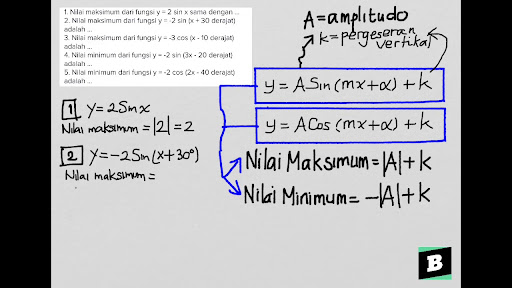 1. Nilai maksimum dari fungsi y = 2 sin x sama dengan ...
2. Nilai maksimum dari fungsi y = -2 sin (x + 30 derajat)
adalah ...
3. Nilai maksimum dari fungsi y = -3 cos (x - 10 derajat)
adalah ...
4. Nilai minimum dari fungsi y = -2 sin (3x - 20 derajat)
adalah ...
5. Nilai minimum dari fungsi y = -2 cos (2x - 40 derajat)
adalah ...
A = amplitudo
k = pergeseran
vertikal
y = A Sin (mx+α) + k
y = A Cos (mx+α) + k
Nilai Maksimum = |A| + k
Nilai Minimum = -|A| + k
1 y = 2 Sin x
Nilai maksimum = |2| = 2
2 y = -2 Sin (x + 30°)
Nilai maksimum =
B